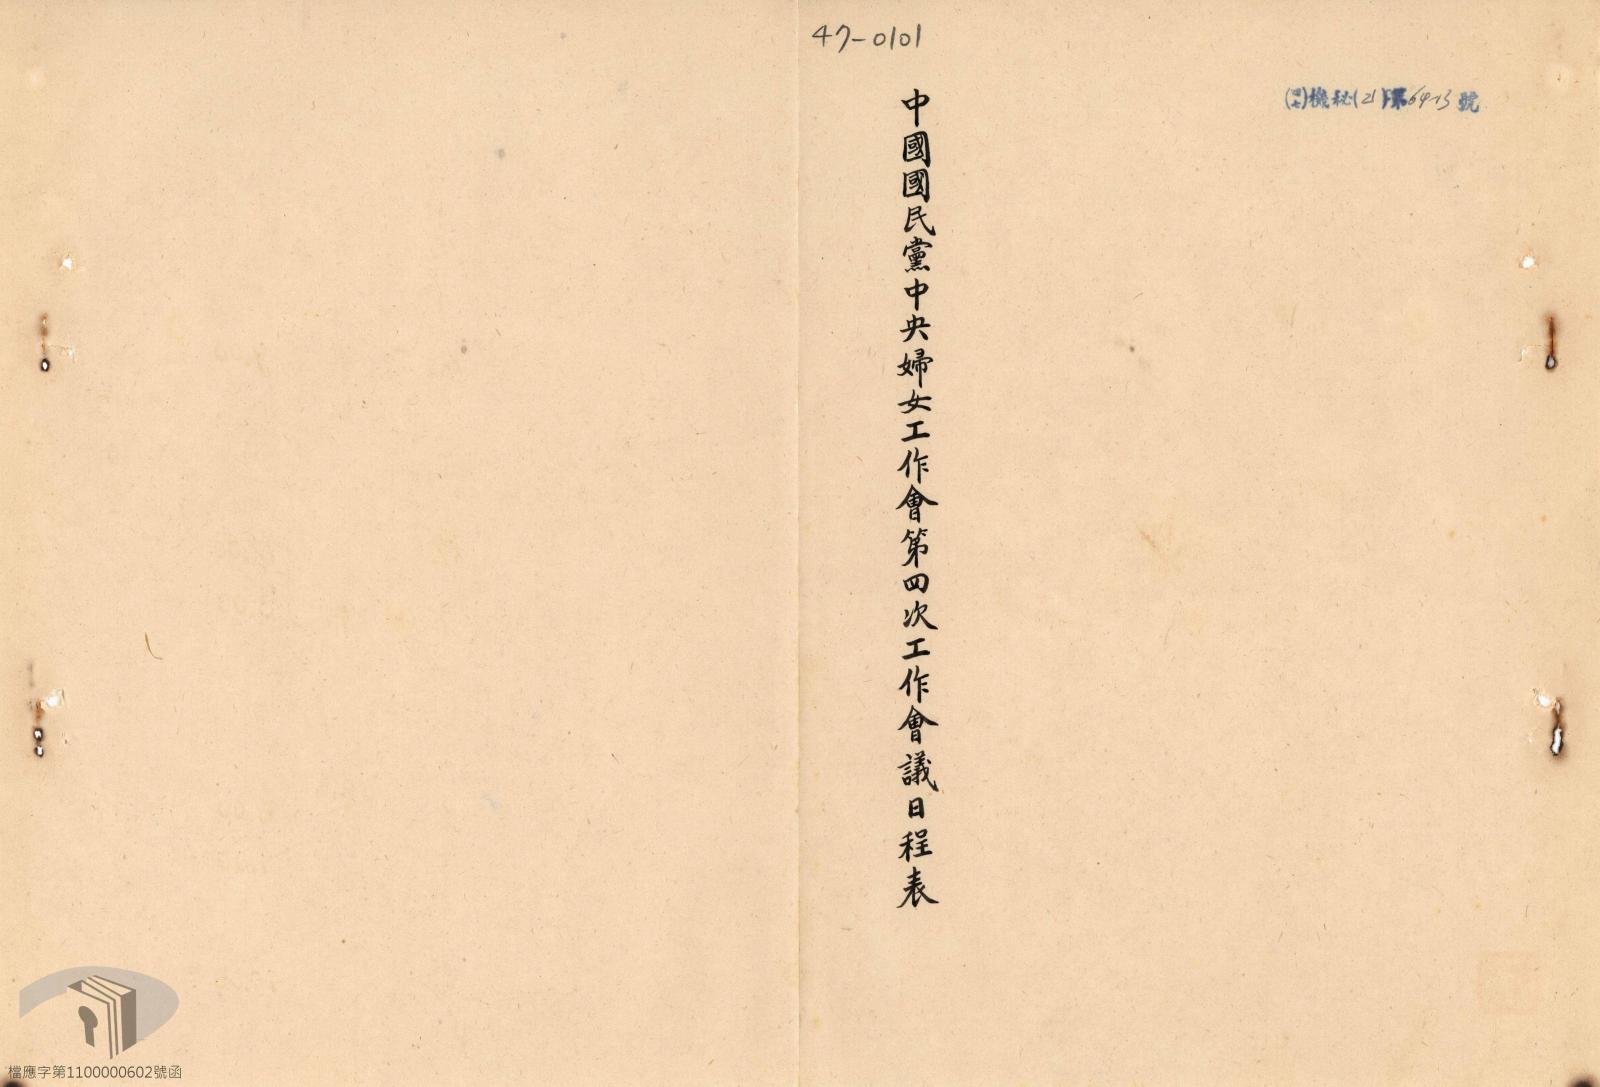 47-0101
(四七)機秘(21)第64-13號
中國國民黨中央婦女工作會第四次工作會議日程表
檔應字第1100000602號函